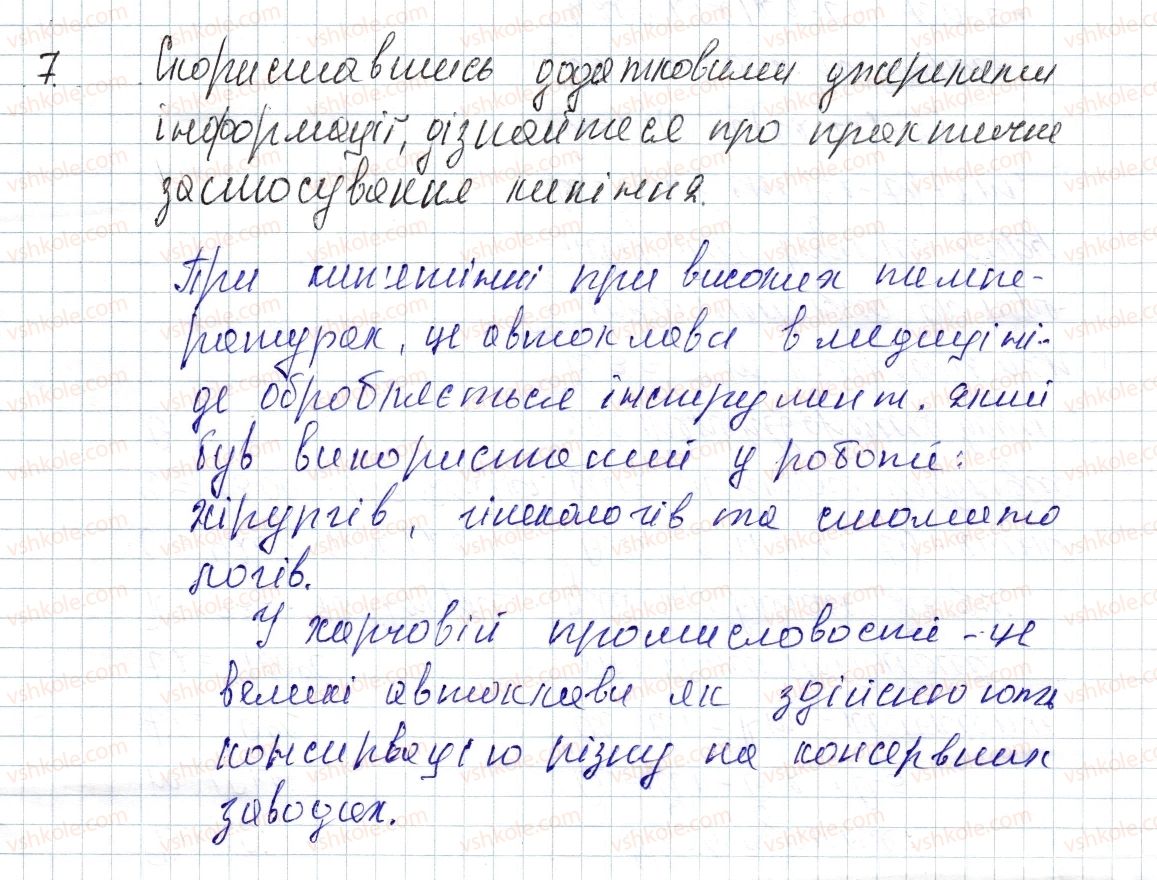 7. Скориставшись додатковими джерелами
інформації, дізнайтеся про практичне
застосування кипіння.
При кип'ятінні при високих темпе-
ратурах, це автоклави в медицині-
де обробляється інструмент. який
був використаний у роботі:
хірургів, гінекологів та стомато
логів.
У харчовій промисловості - це
великі автоклави як здійснюють
консервацію різну на консервних
заводах.